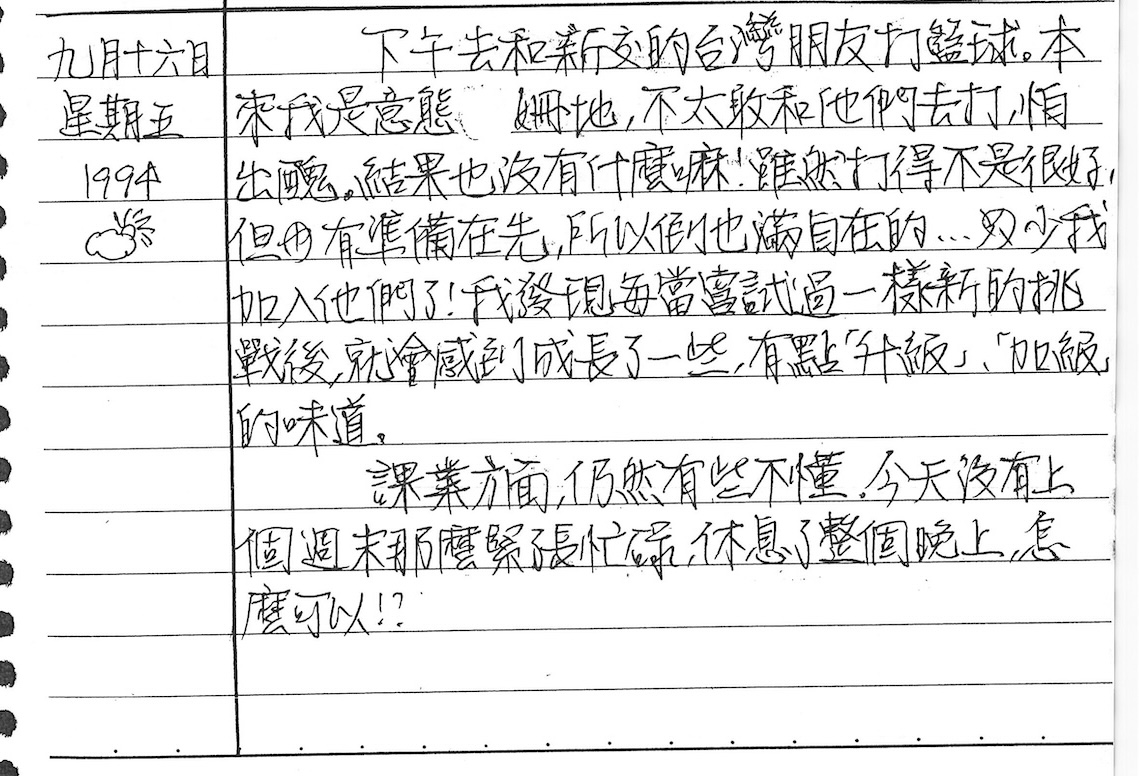 九月十六日
星期五
1994
下午去和新交的台灣朋友打籃球。本
來我是意態 姍地,不太敢和他們去打,怕
出醜。結果也沒有什麼嘛!雖然打得不是很好,
但毋有準備在先,所以倒也滿自在的...
我
加入他們了!我發現每當嘗試過一樣新的挑
戰後,就會感到成長了一些,有點「升級」、「加級」
的味道。
課業方面,仍然有些不懂。今天沒有上
個週末那麼緊張忙碌,休息了整個晚上,怎
麼可以!?